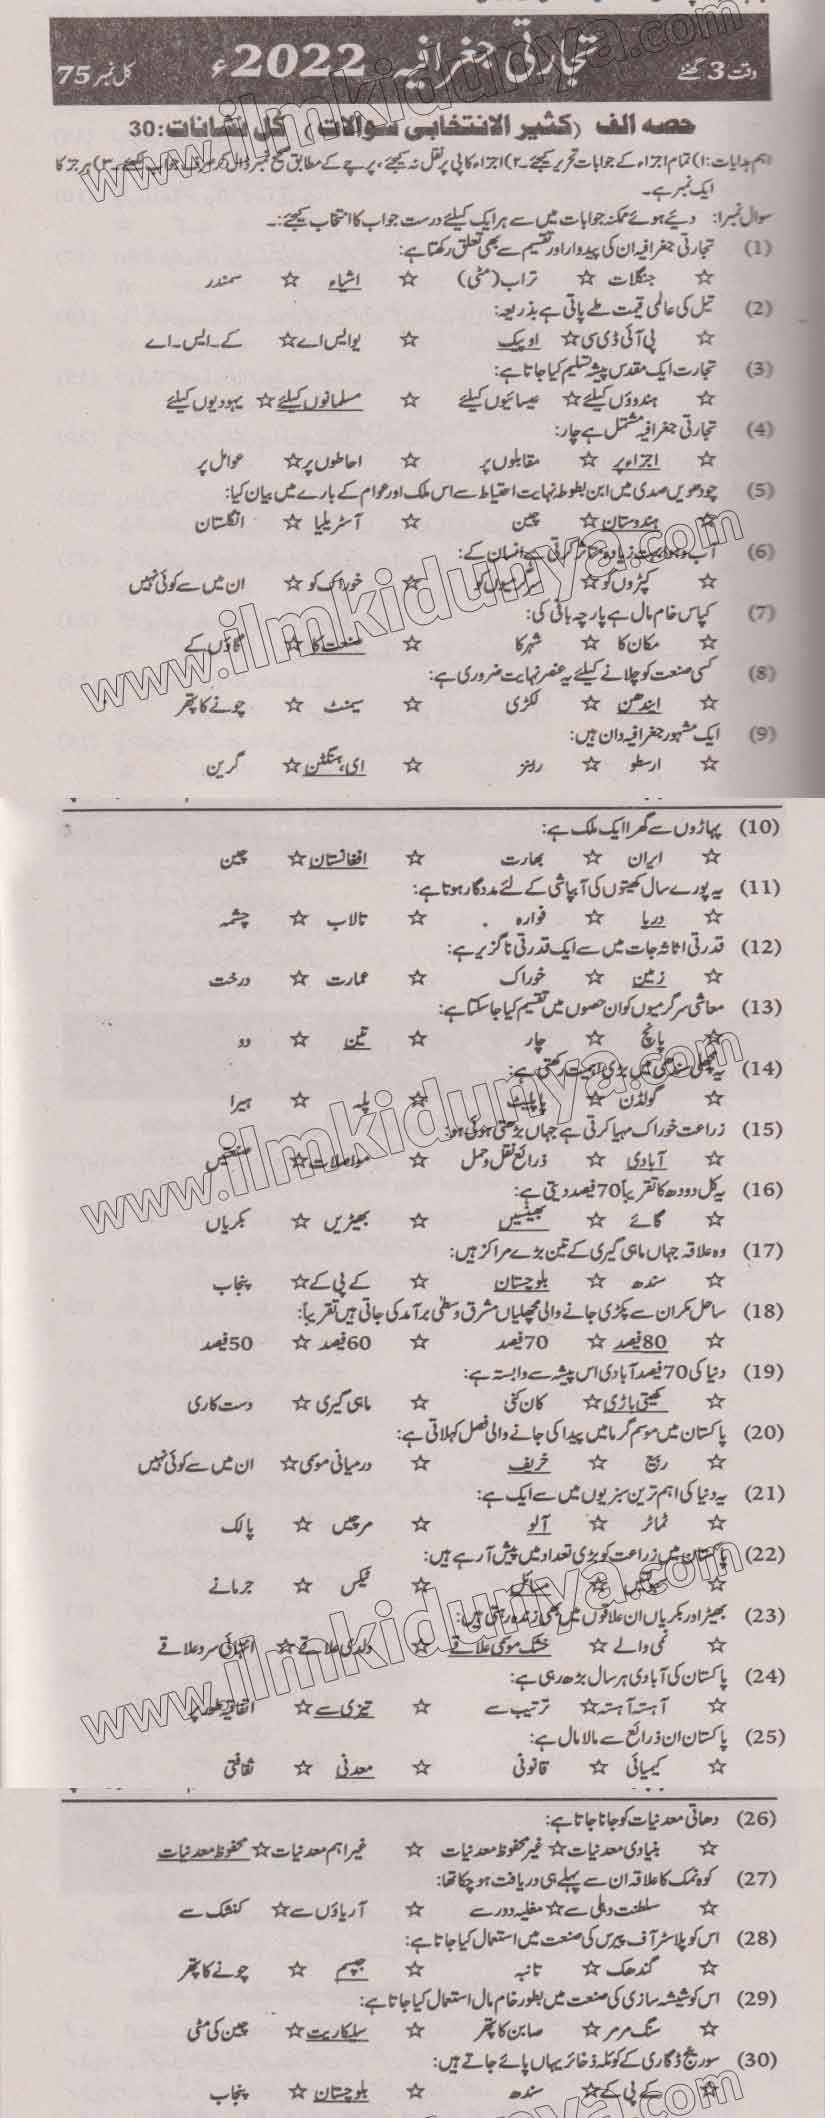 وقت 3 گھنٹے تجارتی جغرافیہ 2022ء کل نمبر 75
حصہ الف (کثیر الانتخابی سوالات) کل نشانات: 30
اہم ہدایات: ۱) تمام اجزاء کے جوابات تحریر کیجئے۔ ۲) اجزاء کاپی پر نقل نہ کیجئے، پرچے کے مطابق صحیح نمبر ڈال کر صرف جواب لکھئے۔ ۳) ہر جز کا
ایک نمبر ہے۔
سوال نمبر ۱: دیئے ہوئے ممکنہ جوابات میں سے ہر ایک کیلئے درست جواب کا انتخاب کیجئے:۔
(1) تجارتی جغرافیہ ان کی پیداوار اور تقسیم سے بھی تعلق رکھتا ہے:
☆ جنگلات ☆ تراب (مٹی) ☆ اشیاء ☆ سمندر
(2) تیل کی عالمی قیمت طے پاتی ہے بذریعہ:
☆ پی آئی ڈی سی ☆ اوپیک ☆ یو ایس اے ☆ کے۔ایس۔اے
(3) تجارت ایک مقدس پیشہ تسلیم کیا جاتا ہے:
☆ ہندوؤں کیلئے ☆ عیسائیوں کیلئے ☆ مسلمانوں کیلئے ☆ یہودیوں کیلئے
(4) تجارتی جغرافیہ مشتمل ہے چار:
☆ اجزاء پر ☆ مقابلوں پر ☆ احاطوں پر ☆ عوامل پر
(5) چودھویں صدی میں ابن بطوطہ نہایت احتیاط سے اس ملک اور عوام کے بارے میں بیان کیا:
☆ ہندوستان ☆ چین ☆ آسٹریلیا ☆ انگلستان
(6) آب و ہوا بہت زیادہ متاثر کرتی ہے انسان کے:
☆ کپڑوں کو ☆ سرگرمیوں کو ☆ خوراک کو ☆ ان میں سے کوئی نہیں
(7) کپاس خام مال ہے پارچہ بافی کی:
☆ مکان کا ☆ شہر کا ☆ صنعت کا ☆ گاؤں کے
(8) کسی صنعت کو چلانے کیلئے یہ عنصر نہایت ضروری ہے:
☆ ایندھن ☆ لکڑی ☆ سیمنٹ ☆ چونے کا پتھر
(9) ایک مشہور جغرافیہ دان ہیں:
☆ ارسطو ☆ ☆ ای ہنگٹن ☆ گرین
(10) پہاڑوں سے گھرا ایک ملک ہے:
☆ ایران ☆ بھارت ☆ افغانستان ☆ چین
(11) یہ پورے سال کھیتوں کی آبپاشی کے لئے مددگار ہوتا ہے:
☆ دریا ☆ فوارہ ☆ تالاب ☆ چشمہ
(12) قدرتی اثاثہ جات میں سے ایک قدرتی ناگزیر ہے:
☆ زمین ☆ خوراک ☆ عمارت ☆ درخت
(13) معاشی سرگرمیوں کو ان حصوں میں تقسیم کیا جا سکتا ہے:
☆ پانچ ☆ چار ☆ تین ☆ دو
(14) یہ مچھلی سندھ میں بڑی اہمیت رکھتی ہے:
☆ گولڈن ☆ پاپلیٹ ☆ پلہ ☆ ہیرا
(15) زراعت خوراک مہیا کرتی ہے جہاں بڑھتی ہوئی ہو:
☆ آبادی ☆ ذرائع نقل و حمل ☆ مواصلات ☆ صنعتیں
(16) یہ کل دودھ کا تقریباً 70 فیصد دیتی ہے:
☆ گائے ☆ بھینسیں ☆ بھیڑیں ☆ بکریاں
(17) وہ علاقہ جہاں ماہی گیری کے تین بڑے مراکز ہیں:
☆ سندھ ☆ بلوچستان ☆ کے پی کے ☆ پنجاب
(18) ساحل مکران سے پکڑی جانے والی مچھلیاں مشرق وسطیٰ برآمد کی جاتی ہیں تقریباً:
☆ 80 فیصد ☆ 70 فیصد ☆ 60 فیصد ☆ 50 فیصد
(19) دنیا کی 70 فیصد آبادی اس پیشہ سے وابستہ ہے:
☆ کھیتی باڑی ☆ کان کنی ☆ ماہی گیری ☆ دست کاری
(20) پاکستان میں موسم گرما میں پیدا کی جانے والی فصل کہلاتی ہے:
☆ ربیع ☆ خریف ☆ درمیانی موسمی ☆ ان میں سے کوئی نہیں
(21) یہ دنیا کی اہم ترین سبزیوں میں سے ایک ہے:
☆ ٹماٹر ☆ آلو ☆ مرچیں ☆ پالک
(22) پاکستان میں زراعت کو بڑی تعداد میں پیش آرہے ہیں:
☆ ☆ مسائل ☆ ٹیکس ☆ جرمانے
(23) بھیڑ اور بکریاں ان علاقوں میں بھی زندہ رہتی ہیں:
☆ نمی والے ☆ خشک موسمی علاقے ☆ دلدلی علاقے ☆ انتہائی سرد علاقے
(24) پاکستان کی آبادی ہر سال بڑھ رہی ہے:
☆ آہستہ آہستہ ☆ ترتیب سے ☆ تیزی سے ☆ اتفاقیہ طور پر
(25) پاکستان ان ذرائع سے مالا مال ہے:
☆ کیمیائی ☆ قانونی ☆ معدنی ☆ ثقافتی
(26) دھاتی معدنیات کو جانا جاتا ہے:
☆ بنیادی معدنیات ☆ غیر محفوظ معدنیات ☆ غیر اہم معدنیات ☆ محفوظ معدنیات
(27) کوہ نمک کا علاقہ ان سے پہلے ہی دریافت ہو چکا تھا:
☆ سلطنت دہلی سے ☆ مغلیہ دور سے ☆ آریاؤں سے ☆ کنشک سے
(28) اس کو پلاسٹر آف پیرس کی صنعت میں استعمال کیا جاتا ہے:
☆ گندھک ☆ تانبہ ☆ جپسم ☆ چونے کا پتھر
(29) اس کو شیشہ سازی کی صنعت میں بطور خام مال استعمال کیا جاتا ہے:
☆ سنگ مرمر ☆ صابن کا پتھر ☆ سیلکاریت ☆ چین کی مٹی
(30) سور رینج ڈگاری کے کوئلہ ذخائر یہاں پائے جاتے ہیں:
☆ کے پی کے ☆ سندھ ☆ بلوچستان ☆ پنجاب
www.ilmkidunya.com
www.ilmkidunya.com
www.ilmkidunya.com
www.ilmkidunya.com